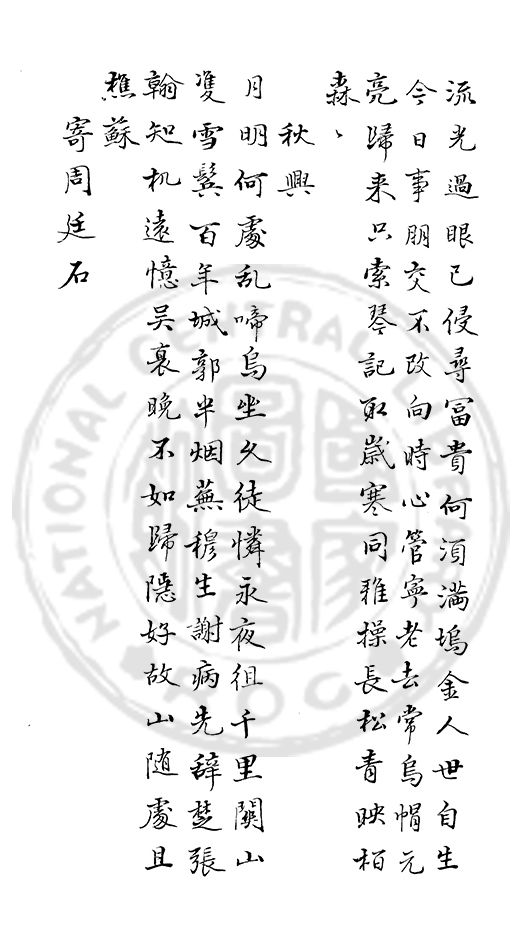 流光過眼已侵尋冨貴何湏满塢金人世自生
今日事朋交不改向時心管寧老去常烏帽元
亮歸来只索琴記取嵗寒同雅操長松青映栢
森〻
秋興
月明何處乱啼烏坐久徒憐永夜徂千里關山
雙雪鬂百年城郭半烟蕪穆生謝病先辞楚張
翰知机遠憶吴裒晚不如歸隠好故山随處且
樵蘇
寄周廷石
NATIONAL CENTRAL LIBRARY